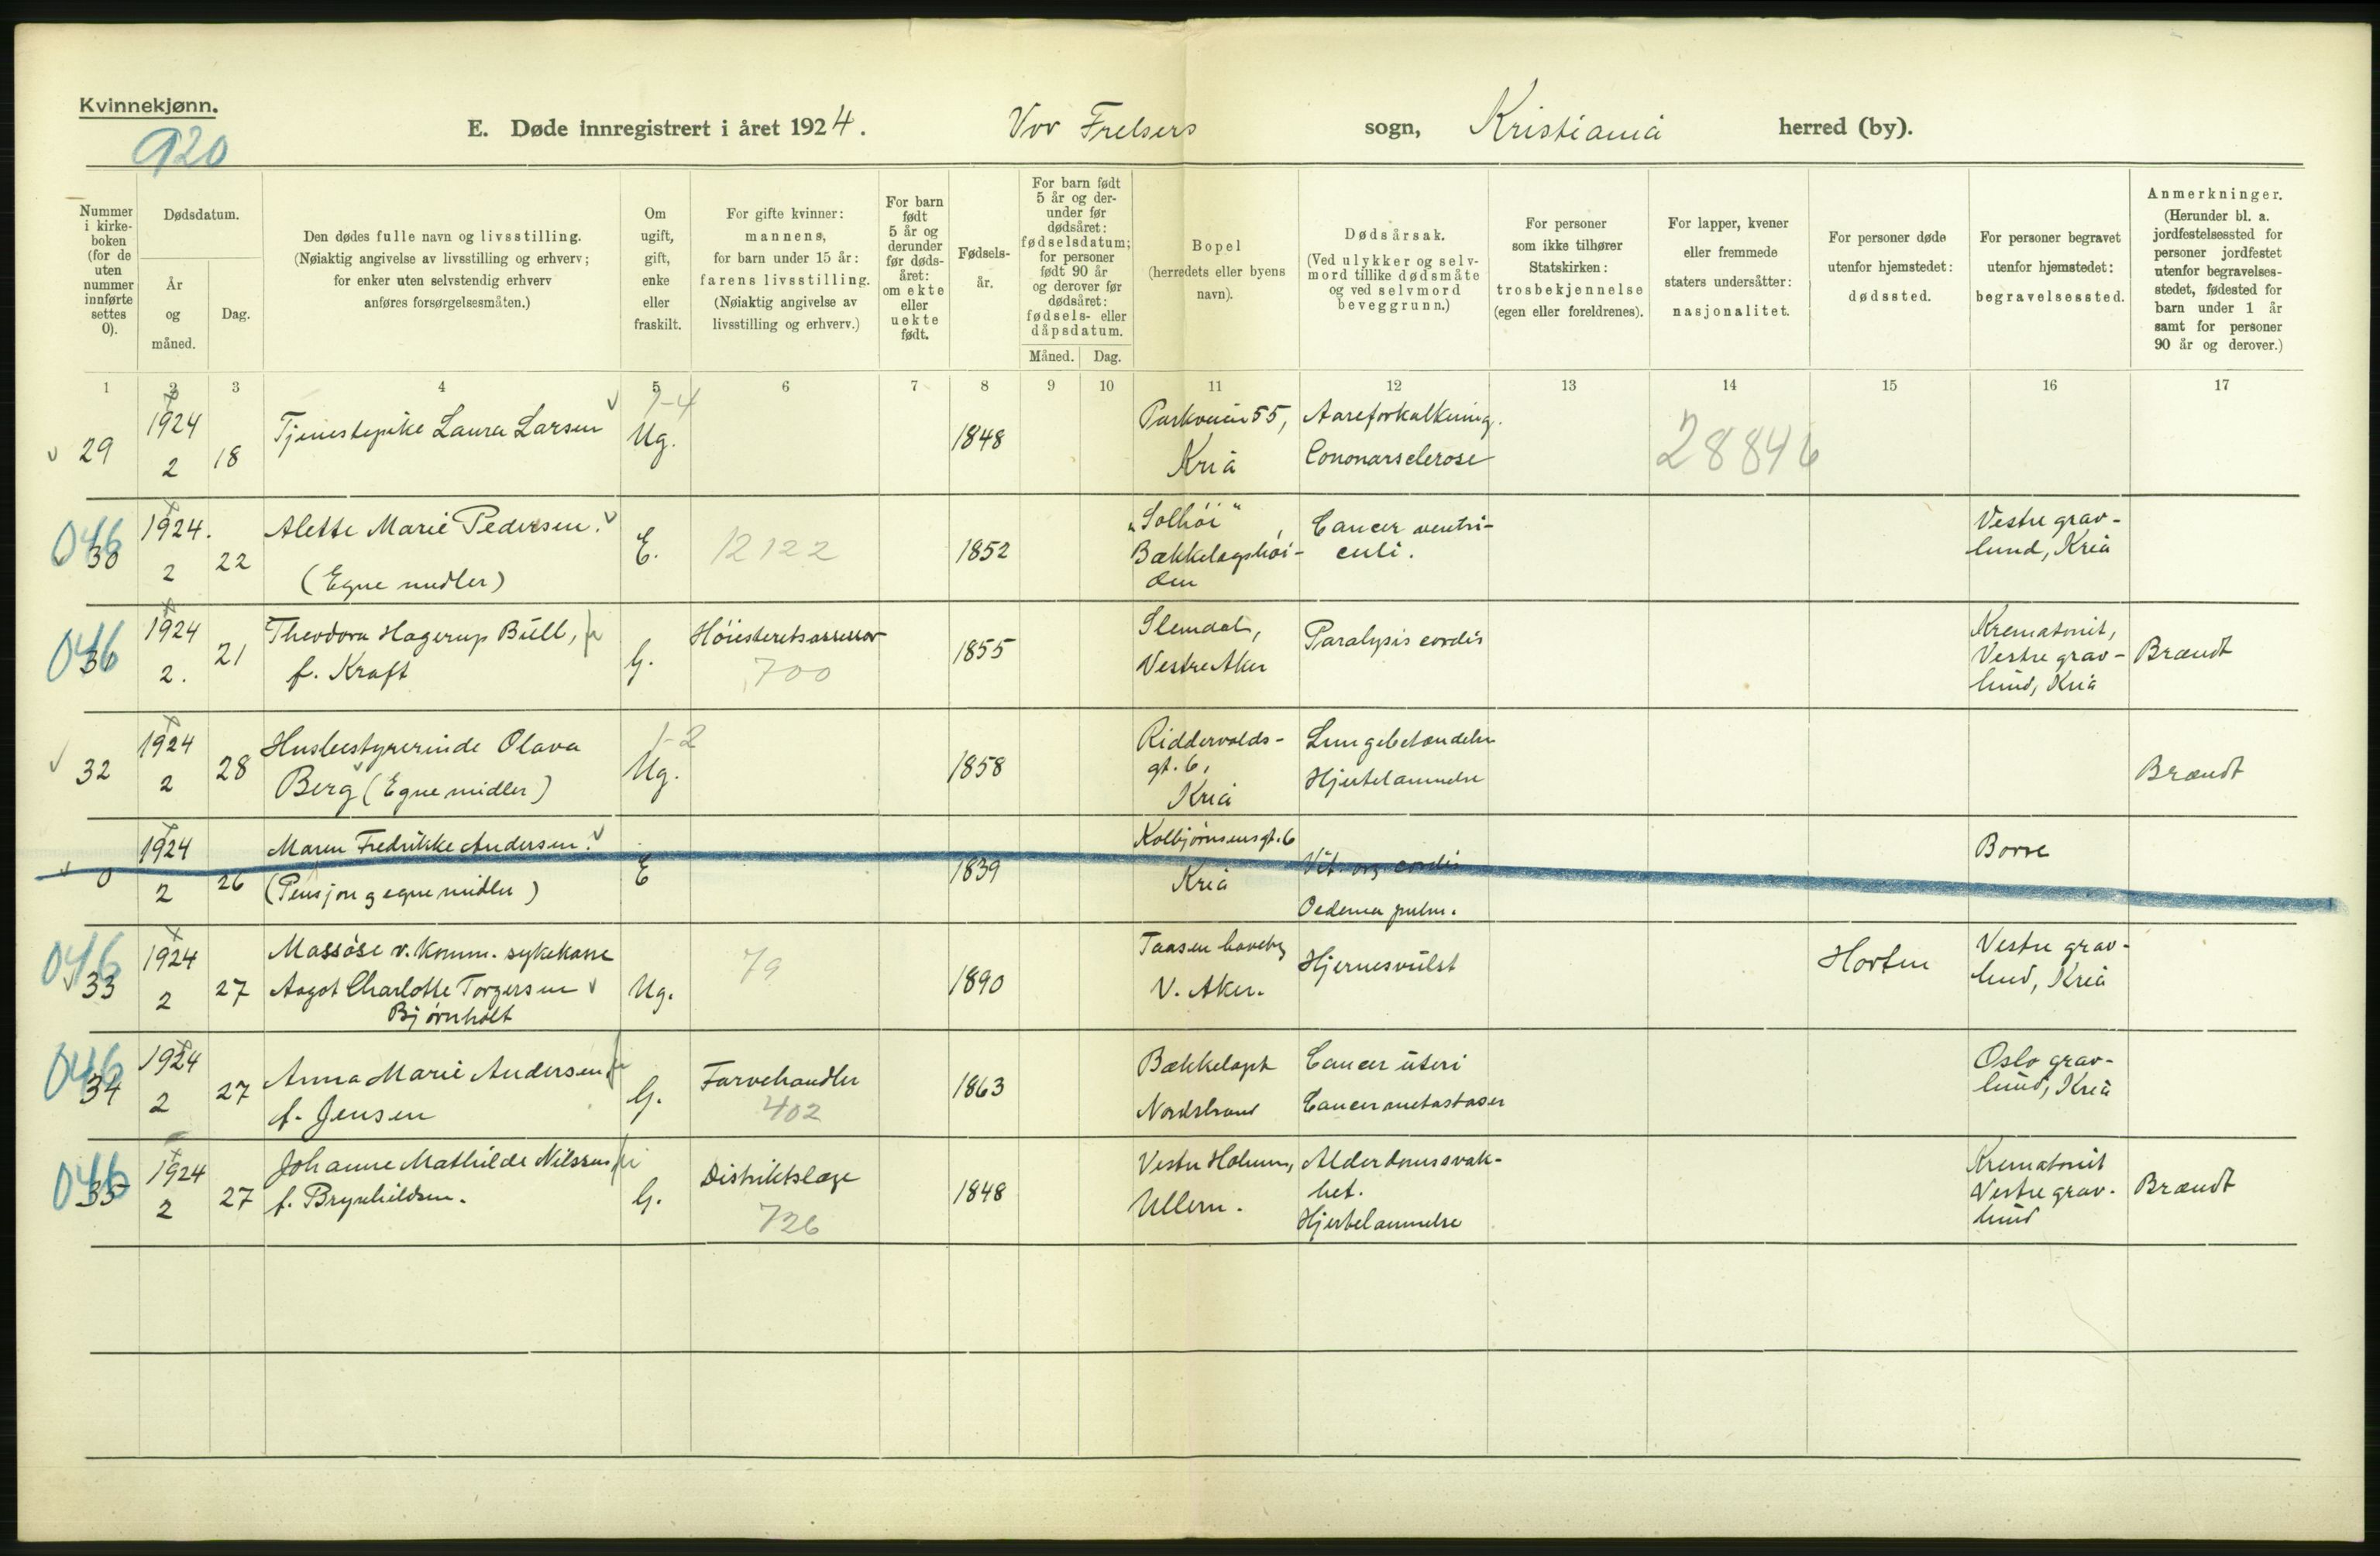 Kvinnekjønn.
920
E. Døde innregistrert i året 1924. Vor Frelsers sogn, Kristiania herred (by).
Nummer i kirke-boken (for de uten nummer innførte settes 0).
Dødsdatum.
År og måned.
Dag.
Den dødes fulle navn og livsstilling.
(Nøiaktig angivelse av livsstilling og erhverv;
for enker uten selvstendig erhverv
anføres forsørgelsesmåten.)
Om ugift, gift, enke eller fraskilt.
For gifte kvinner:
mannens,
for barn under 15 år:
farens livsstilling.
(Nøiaktig angivelse av
livsstilling og erhverv.)
For barn født 5 år og derunder før døds-året: om ekte eller uekte født.
Fødsels-år.
For barn født 5 år og der-under før dødsåret: fødselsdatum; for personer født 90 år og derover før dødsåret: fødsels- eller dåpsdatum.
Måned. Dag.
Bopel
(herredets eller byens
navn).
Dødsårsak.
(Ved ulykker og selv-
mord tillike dødsmåte
og ved selvmord
beveggrunn.)
For personer
som ikke tilhører
Statskirken:
trosbekjennelse
(egen eller foreldrenes).
For lapper, kvener
eller fremmede
staters undersåtter:
nasjonalitet.
For personer døde
utenfor hjemstedet:
dødssted.
For personer begravet
utenfor hjemstedet:
begravelsessted.
Anmerkninger.
(Herunder bl. a.
jordfestelsessted for
personer jordfestet
utenfor begravelses-
stedet, fødested for
barn under 1 år
samt for personer
90 år og derover.)
1 2 3 4 5 6 7 8 9 10 11 12 13 14 15 16 17
29 1924 2 18 Tjenestepike Laura Larsen Ug. 1-4 1848 Parkveien 55, Kria Aareforkalkning. Cononarsclerose 28846
046 30 1924. 2 22 Alette Marie Pedersen. (Egne midler) E. 12122 1852 "Solhöi", Bækkelagshöi-den Cancer ventri-culi. Vestre grav-lund, Kria
046 36 1924 2. 21 Theodora Hagerup Bull, f. Kraft G. Höiesteretsassessor 700 1855 Slemdal, Vestre Aker Paralysis cordis Krematoriet, Vestre grav-lund, Kria Brændt
32 1924 2 28 Husbestyrerinde Olava Berg (Egne midler) Ug. 1-2 1858 Riddervolds-gt. 6, Kria Lungebetændelse Hjertelammelse Brændt
0 1924 2 26 Maren Fredrikke Andersen. (Pensjon g egne midler) E 1839 Kolbjørnsensgt. 6 Kria Vit. org. cordis Oedema pulm. Borre
046 33 1924 2 27 Massöse v. Komm. sykekasse Aagot Charlotte Torgersen Bjørnholt Ug. 79 1890 Taasen haveby V. Aker. Hjernesvulst Horten Vestre grav-lund, Kria
046 34 1924 2 27 Anna Marie Andersen f. Jensen G. Farvehandler 402 1863 Bækkelaget Nordstrand Cancer uteri Cancermetastaser Oslo grav-lund, Kria
046 35 1924 2 27 Johanne Mathilde Nilssen f. Brynhildsen. G. Distriktslæge 726 1848 Vestre Holmen, Ullern. Alderdomssvak-het. Hjertelammelse Krematoriet Vestre grav-lund Brændt